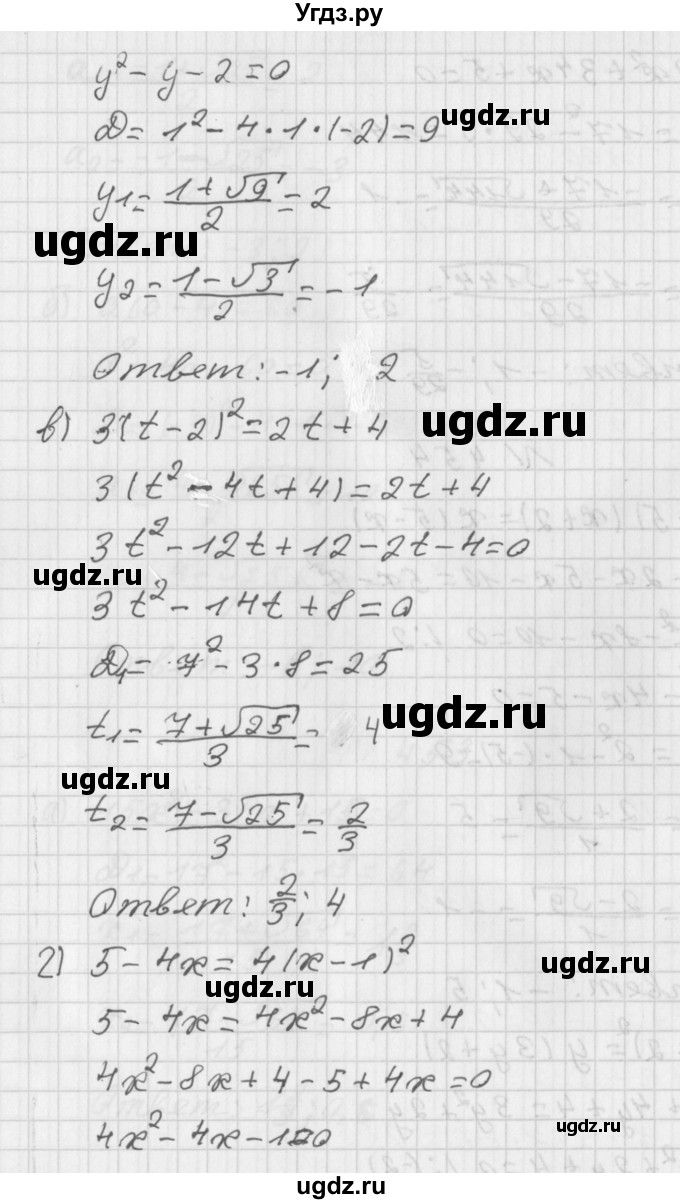 Угдз.ру
y² - y - 2 = 0
D = 1² - 4 · 1 · (-2) = 9
ugdz.ru
y₁ = (1 + √9)/2 = 2
ugdz.ru
y₂ = (1 - √3)/2 = -1
Ответ: -1; 2
в) 3(t - 2)² = 2t + 4
ugdz.ru
3(t² - 4t + 4) = 2t + 4
3t² - 12t + 12 - 2t - 4 = 0
ugdz.ru
3t² - 14t + 8 = 0
D₁ = 7² - 3 · 8 = 25
t₁ = (7 + √25)/3 = 4
ugdz.ru
ugdz.ru
t₂ = (7 - √25)/3 = 2/3
Ответ: 2/3; 4
г) 5 - 4x = 4(x - 1)²
ugdz.ru
ugdz.ru
5 - 4x = 4x² - 8x + 4
4x² - 8x + 4 - 5 + 4x = 0
4x² - 4x - 1 = 0
ugdz.ru
ugdz.ru